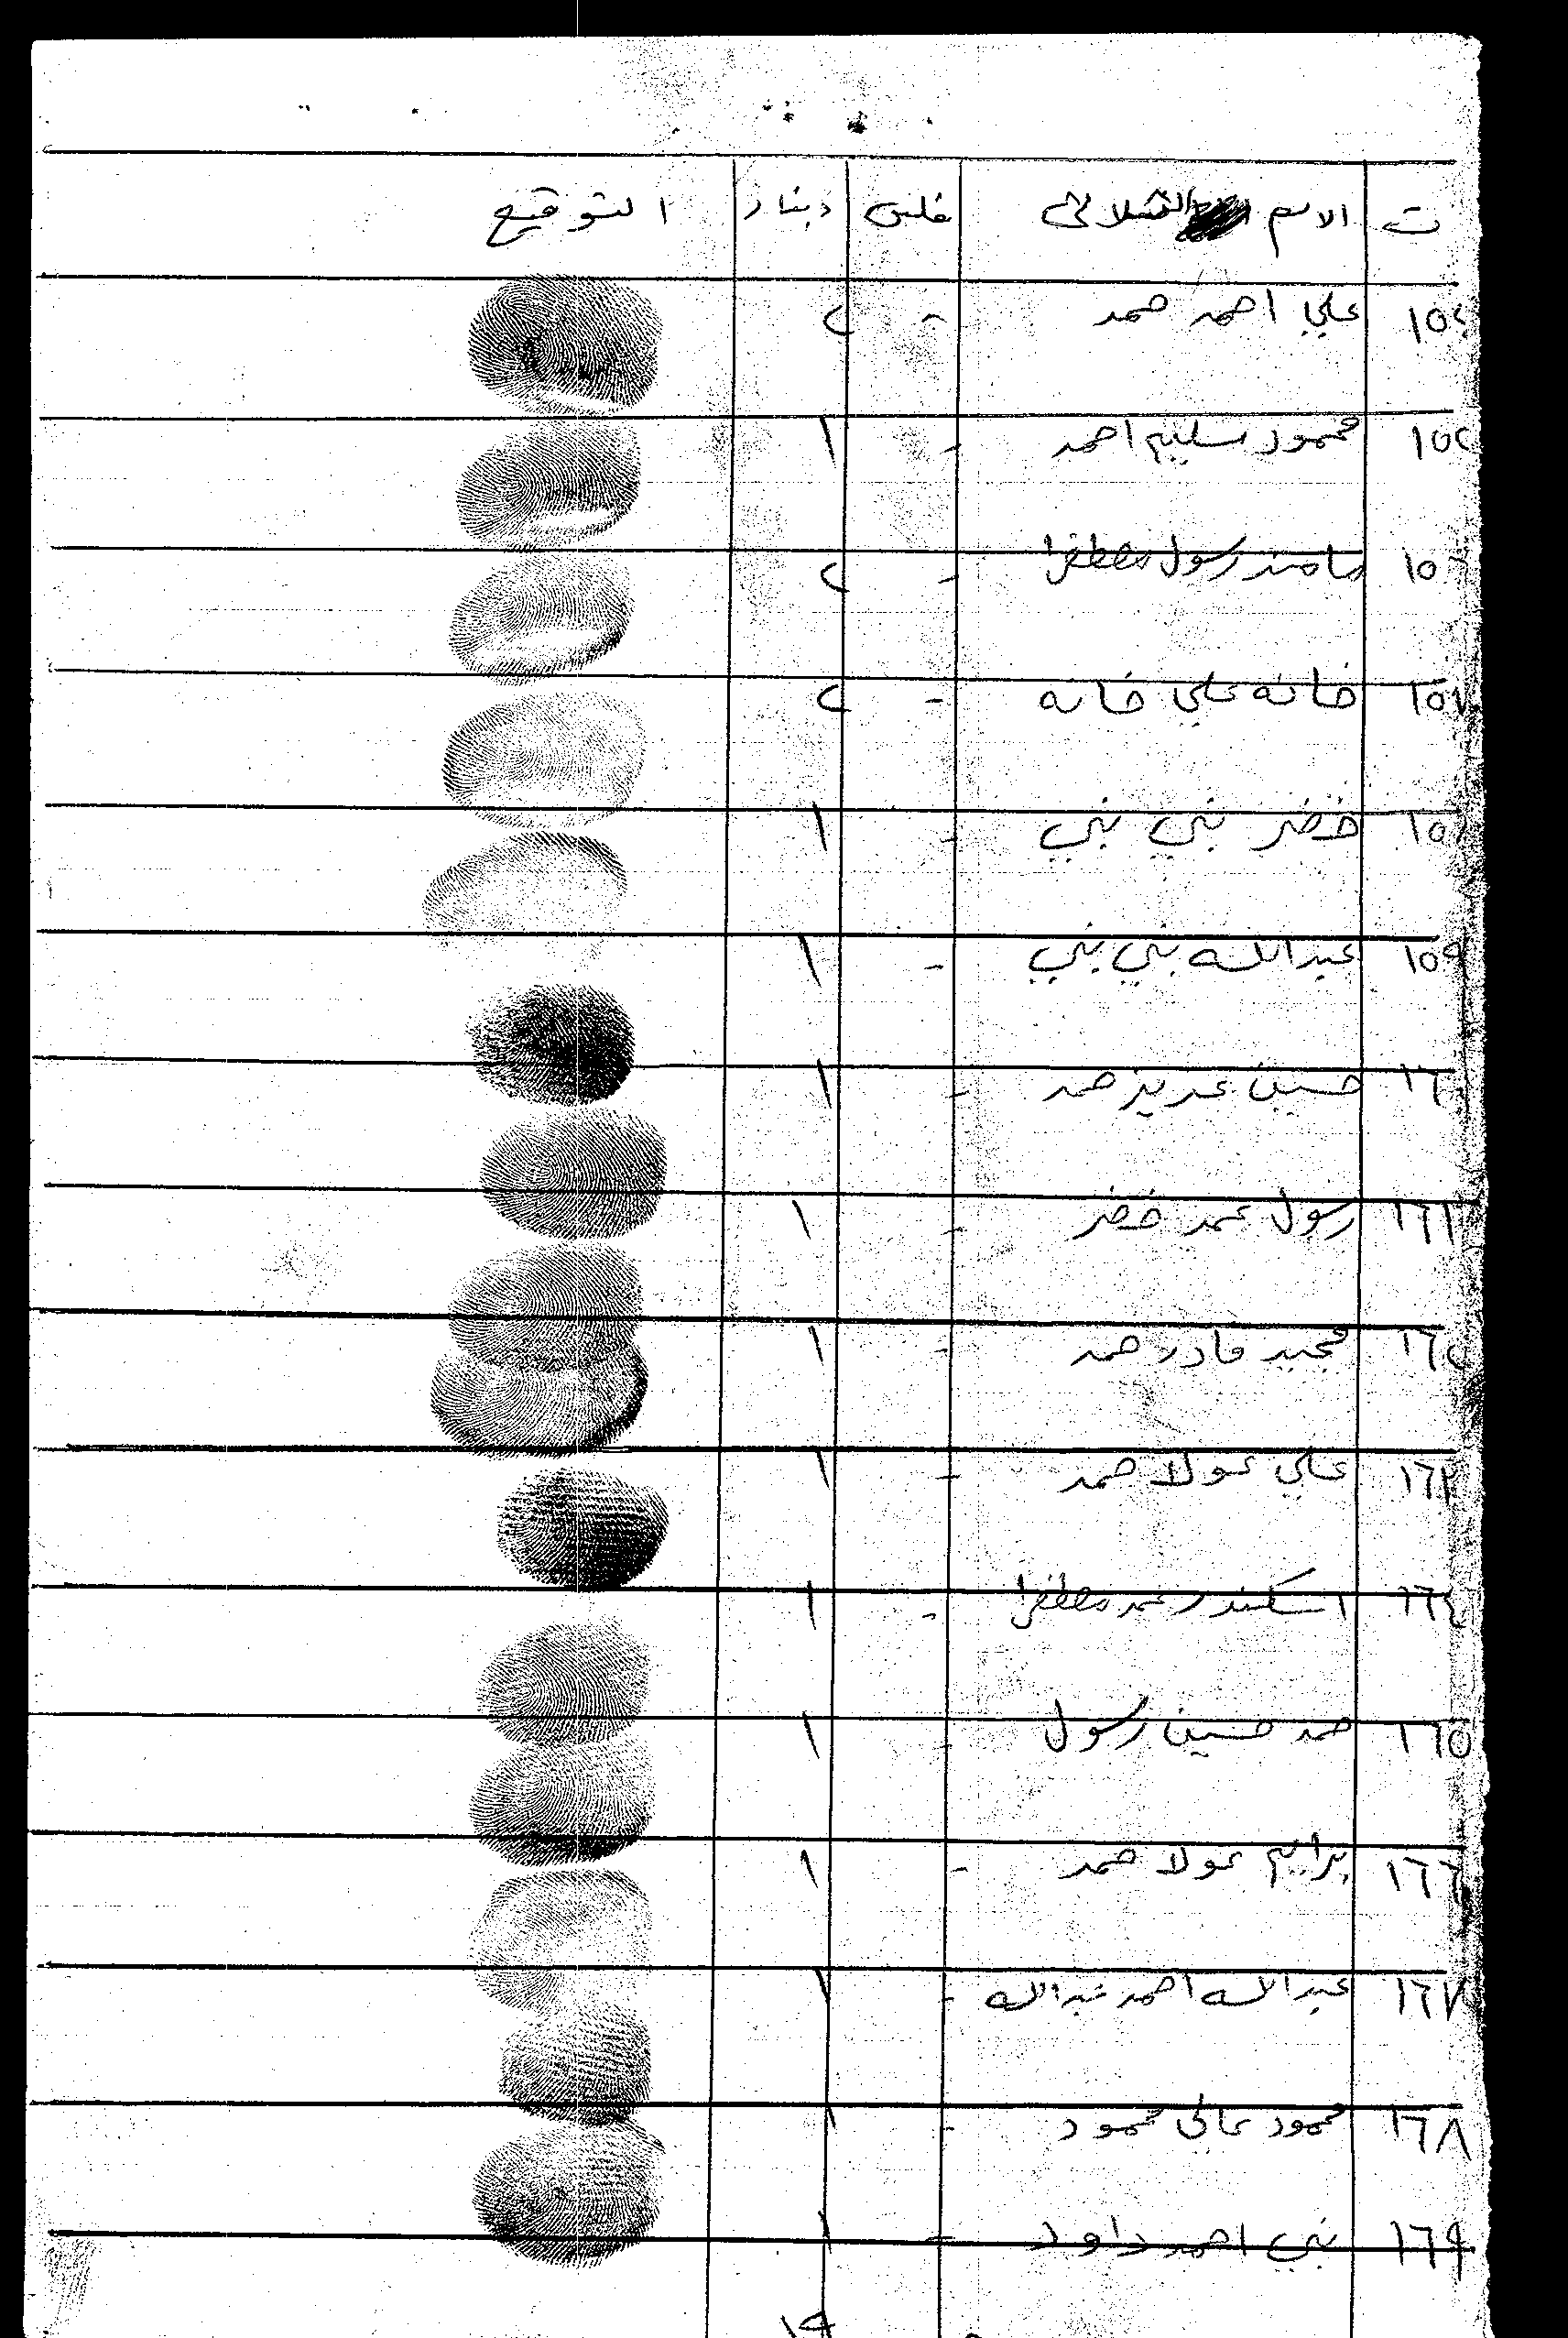 ت الاسم الثلاثي فلس دينار التوقيع
علي احمد حمد - ٢
محمود سليم احمد - ١
مامند رسول مصطفى - ٢
خانه علي خانه - ٢
خضر نبي نبي - ١
١٥٩ عبدالله نبي نبي - ١
١٦٠ حسين عزيز حمد - ١
١٦١ رسول محمد خضر - ١
١٦٢ مجيد قادر حمد - ١
١٦٣ علي مولا حمد - ١
١٦٤ اسكندر محمد مصطفى - ١
١٦٥ حمد حسين رسول - ١
١٦٦ برايم مولا حمد - ١
١٦٧ عبدالله احمد عبدالله - ١
١٦٨ محمود مالى محمود - ١
١٦٩ نبي احمد داود - ١
١٩